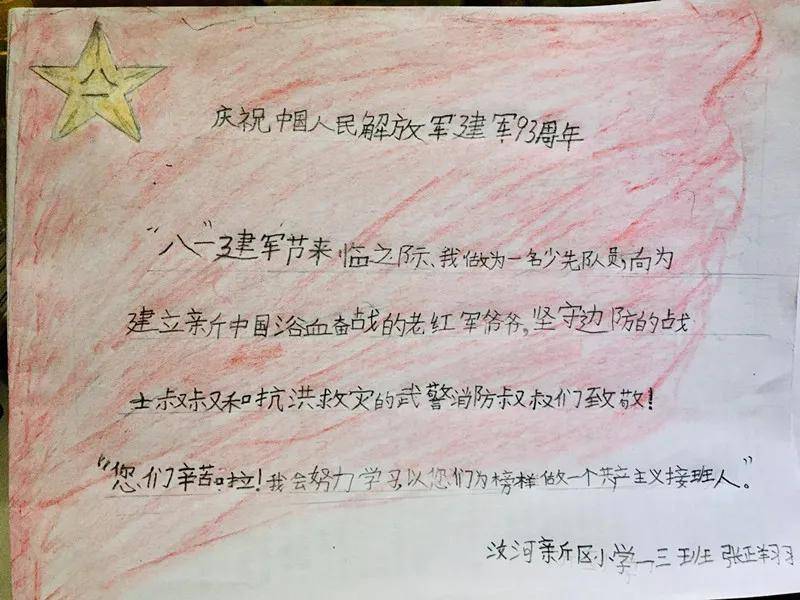 八一
庆祝中国人民解放军建军93周年
“八一”建军节来临之际、我做为一名少先队员,向为
建立新中国浴血奋战的老红军爷爷,坚守边防的战
士叔叔和抗洪救灾的武警消防叔叔们致敬!
“您们辛苦啦!我会努力学习,以您们为榜样做一个共产主义接班人。”
汶河新区小学一三班 张正翔